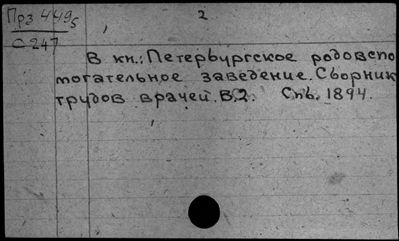 Прз 4495
2
С 247
В кн.: Петербургское родовспо
могательное заведение. Сборник
трудов врачей. В.2. Спб. 1894.